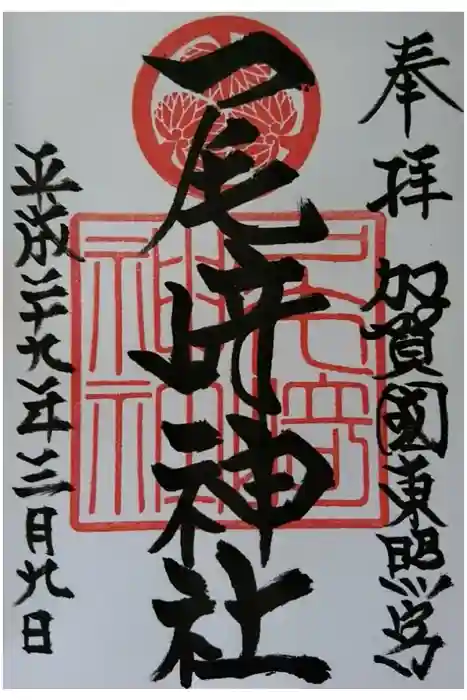 奉拝 加賀國東照宮
尾崎神社
平成二十九年三月九日
尾崎神社